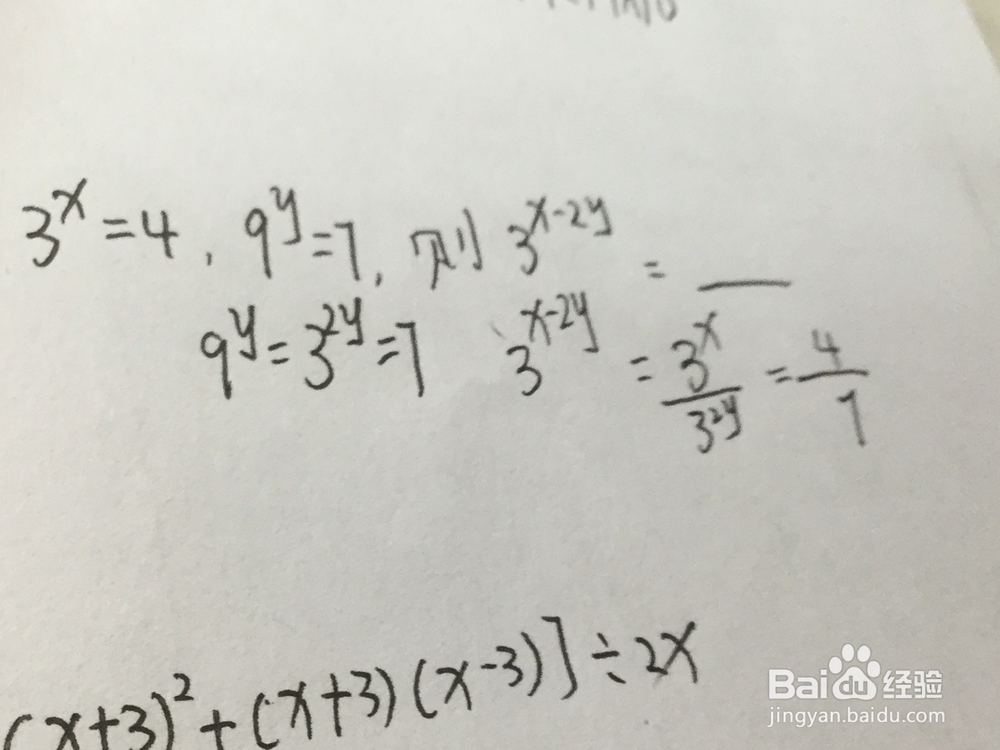 3^x = 4, 9^y = 7, 则 3^(x-2y) = ___
9^y = 3^(2y) = 7  3^(x-2y) = 3^x / 3^(2y) = 4/7
(x+3)^2 + (x+3)(x-3)] ÷ 2x
Baidu 经验
jingyan.baidu.com